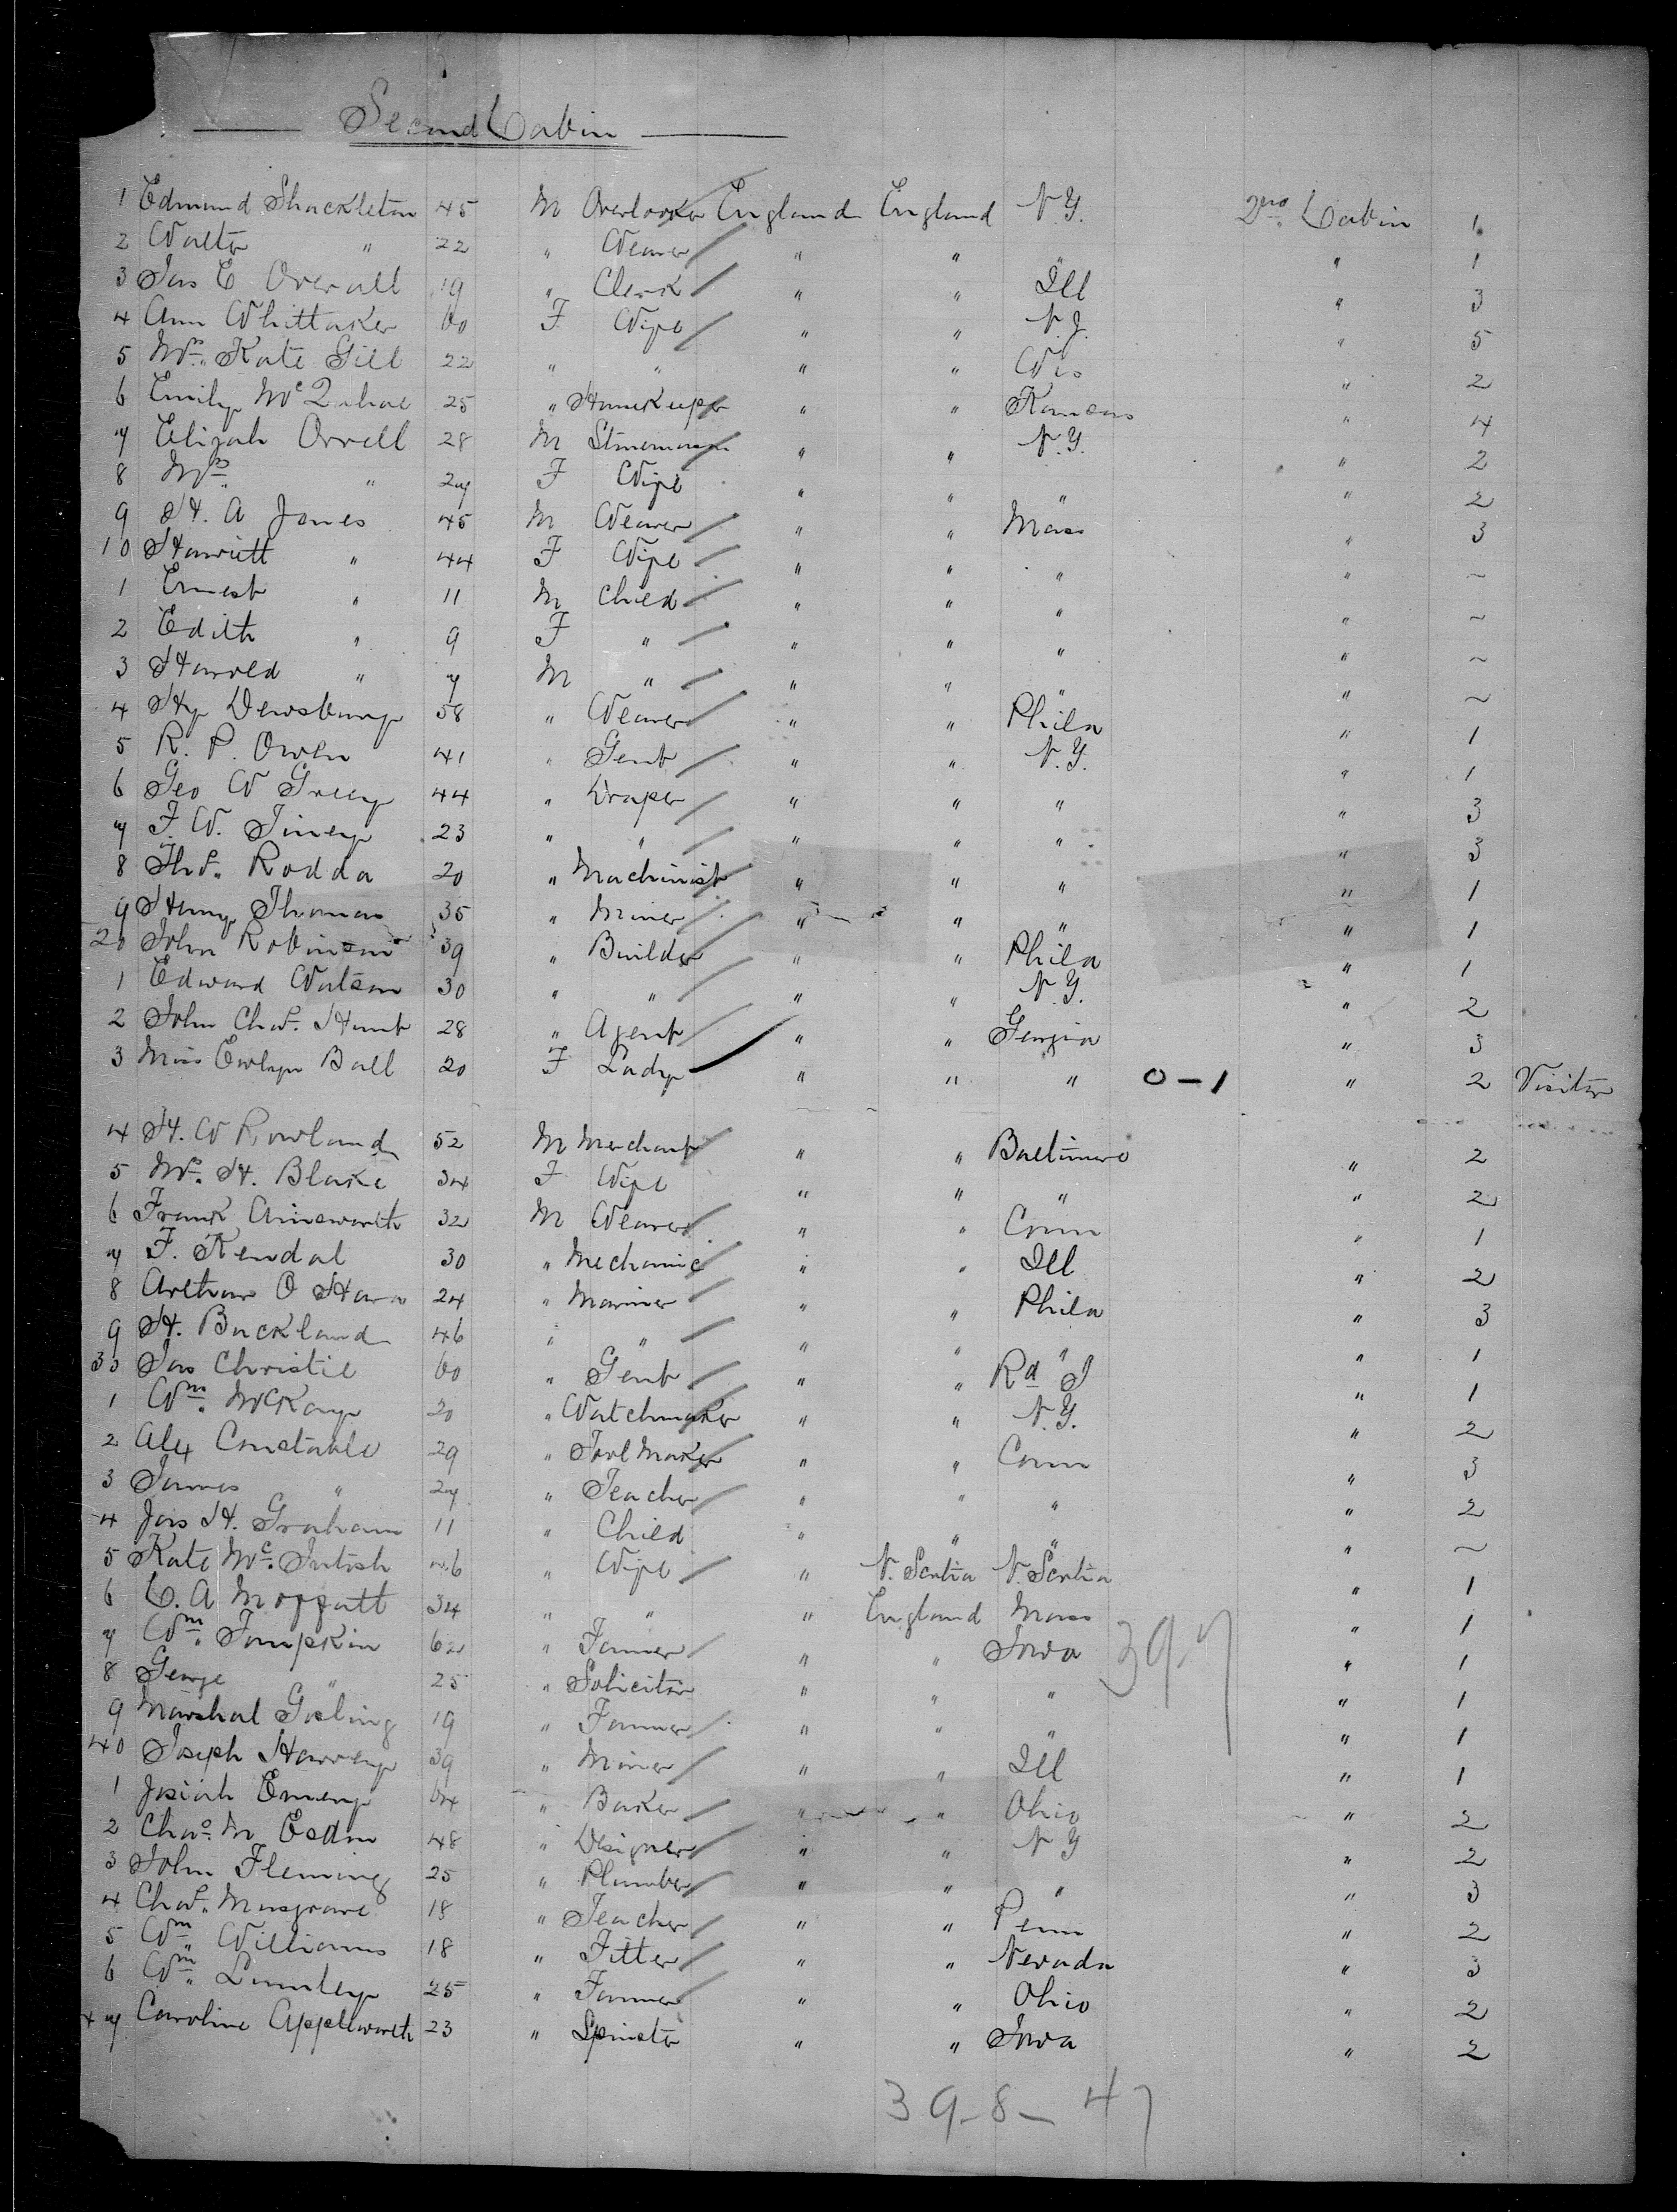 Second Cabin
1 Edmund Shackleton 45 M Overlooker England England N.Y. 2nd Cabin 1
2 Walter " 22 " Weaver " " " " 1
3 Jas E Overall 19 " Clerk " " Ill " 3
4 Ann Whittaker 60 F Wife " " N.J. " 5
5 Mrs. Kate Gill 22 " " " " Wis " 2
6 Emily Mc " Housekeeper 25 " " Kansas " 4
7 Elijah Orrell 28 M Stonemason " " N.Y. " 2
8 Mrs. " 27 F Wife " " " " 2
9 H. A Jones 45 M Weaver " " Mass " 3
10 Harriett " 44 F Wife " " " " ~
1 Ernest " 11 M Child " " " " ~
2 Edith " 9 F " " " " " ~
3 Harold " 7 M " " " " " ~
4 Hy Dewsbury 58 " Weaver " " Phila " 1
5 R. P. Owen 41 " Gent " " N.Y. " 1
6 Geo W Greey 44 " Draper " " " " 3
7 F. W. 23 " " " " " " 3
8 Thos. Rodda 20 " Machinist " " " " 1
9 Henry Thomas 35 " Miner " " " " 1
20 John Robinson 39 " Builder " " Phila " 1
1 Edward Watson 30 " " " " N.Y. " 2
2 John Chas. Hunt 28 " Agent " " Georgia " 3
3 Miss Evelyn Ball 20 F Lady " " " 0-1 " 2 Visitor
4 H. W Rowland 52 M Merchant " " Baltimore " 2
5 Mrs. H. Blake 34 F Wife " " " " 2
6 Frank Ainsworth 32 M Weaver " " Conn " 1
7 F. Kendal 30 " Mechanic " " Ill " 2
8 Arthur O Hara 24 " Mariner " " Phila " 3
9 H. Buckland 46 " " " " " " 1
30 Jas Christie 60 " Gent " " Rd I " 1
1 Wm. McKay 20 " Watchmaker " " N.Y. " 2
2 Alex Constable 29 " Tool Maker " " Conn " 3
3 James " 27 " Teacher " " " " 2
4 Jas H. Graham 11 " Child " " " " ~
5 Kate Mc.Intosh 46 " Wife " N. Scotia N. Scotia " 1
6 C. A Moffatt 34 " " " England Mass " 1
7 Wm. Tompkin 62 " Farmer " " Iowa 397 " 1
8 George " 25 " Solicitor " " " " 1
9 Marshal Gosling 19 " Farmer " " " " 1
40 Joseph Harvey 39 " Miner " " Ill " 1
1 Josiah Emery 64 " Baker " " Ohio " 2
2 Chas. M Eadon 48 " Designer " " N Y " 2
3 John Fleming 25 " Plumber " " " " 3
4 Chas. Musgrave 18 " Teacher " " Penn " 2
5 Wm. Williams 18 " Fitter " " Nevada " 3
6 Wm. Lumley 25 " Farmer " " Ohio " 2
47 Caroline Appleworth 23 " Spinster " " Iowa " 2
39-8-47